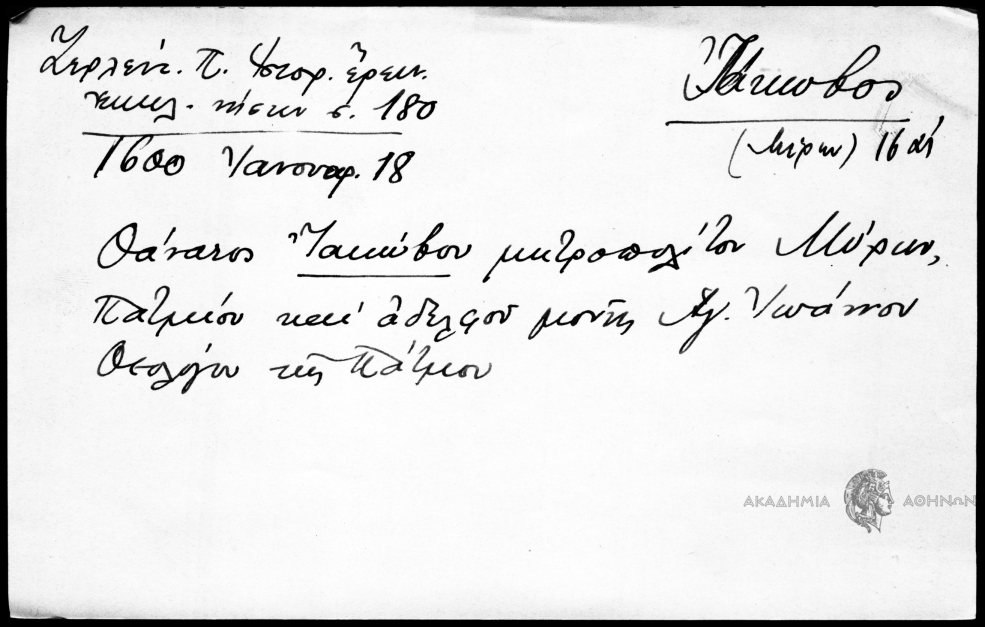 Ζερλέντ. Π. Ἱστορ. ἔρευν.
ἐκκλ. νήσων σ. 180
1600 Ἰανουαρ. 18
Ἰάκωβος
(Μύρων) 16 αἰ
Θάνατος Ἰακώβου μητροπολίτου Μύρων,
Πατμίου καὶ ἀδελφοῦ μονῆς Ἁγ. Ἰωάννου
Θεολόγου τῆς Πάτμου
ΑΚΑΔΗΜΙΑ ΑΘΗΝΩΝ